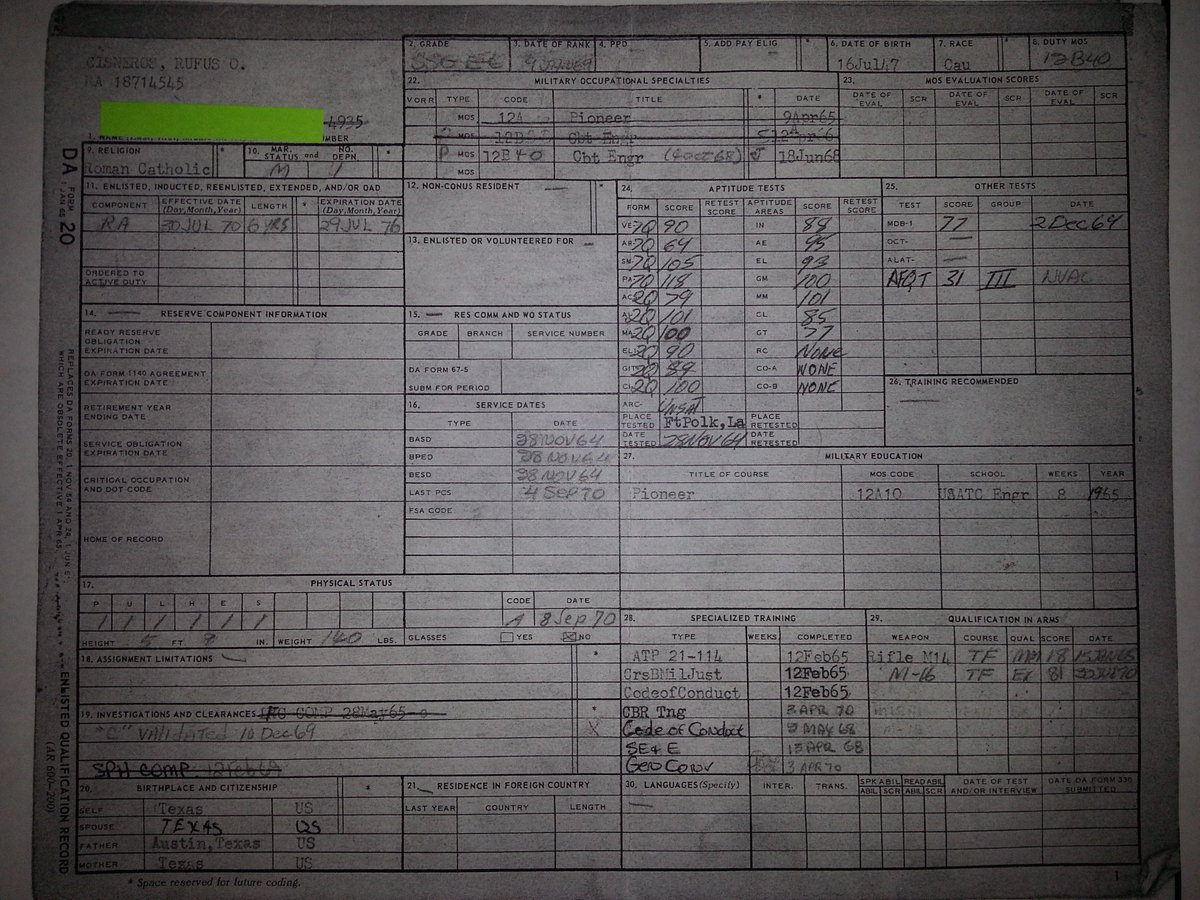 CISNEROS, RUFUS O.
RA 18714545
4935
2. GRADE
SSG E6
3. DATE OF RANK
4. PPD
5. ADD PAY ELIG
*
6. DATE OF BIRTH
16Jul47
7. RACE
Cau
*
8. DUTY MOS
12B40
9. RELIGION
*
Roman Catholic
10. MAR. STATUS and NO. DEPN.
*
M 1
11. ENLISTED, INDUCTED, REENLISTED, EXTENDED, AND/OR OAD
COMPONENT EFFECTIVE DATE (Day, Month, Year) LENGTH * EXPIRATION DATE (Day, Month, Year)
RA 30 JUL 70 6 YRS 29 JUL 76
ORDERED TO ACTIVE DUTY
12. NON-CONUS RESIDENT — *
13. ENLISTED OR VOLUNTEERED FOR —
14. — RESERVE COMPONENT INFORMATION
READY RESERVE OBLIGATION EXPIRATION DATE
DA FORM 1140 AGREEMENT EXPIRATION DATE
RETIREMENT YEAR ENDING DATE
SERVICE OBLIGATION EXPIRATION DATE
CRITICAL OCCUPATION AND DOT CODE
HOME OF RECORD
15. — RES COMM AND WO STATUS
GRADE BRANCH SERVICE NUMBER
DA FORM 67-5
SUBM FOR PERIOD
16. SERVICE DATES
TYPE DATE
BASD 28 NOV 64
BPED 28 NOV 64
BESD 28 NOV 64
LAST PCS 4 SEP 70
FSA CODE
17. PHYSICAL STATUS
P U L H E S CODE DATE
1 1 1 1 1 1 A 8 Sep 70
HEIGHT 5 FT. 8 IN. WEIGHT 140 LBS. GLASSES YES NO
18. ASSIGNMENT LIMITATIONS — *
19. INVESTIGATIONS AND CLEARANCES COMP 28May65 *
"C" VALIDATED 10 Dec 69 X
SPH COMP 12Feb69
20. BIRTHPLACE AND CITIZENSHIP *
SELF Texas US
SPOUSE TEXAS US
FATHER Austin, Texas US
MOTHER Texas US
21. — RESIDENCE IN FOREIGN COUNTRY
LAST YEAR COUNTRY LENGTH
22. MILITARY OCCUPATIONAL SPECIALTIES
V OR R TYPE CODE TITLE * DATE
MOS 12A Pioneer 9Apr65
MOS 12B Cbt Engr
P MOS 12B40 Cbt Engr (4 Oct 68) 18Jun68
MOS
23. MOS EVALUATION SCORES
DATE OF EVAL SCR DATE OF EVAL SCR DATE OF EVAL SCR
24. APTITUDE TESTS
FORM SCORE RETEST SCORE APTITUDE AREAS SCORE RETEST SCORE
VE 20 90 IN 88
AR 20 64 AE 95
SM 20 105 EL 93
PA 20 118 GM 100
AC 20 79 MM 101
20 101 CL 85
MA 20 100 GT 77
EL 20 90 RC NONE
GIT 20 89 CO-A NONE
CI 20 100 CO-B NONE
ARC- UNSAT
PLACE TESTED FtPolk, La PLACE RETESTED
DATE TESTED 28 NOV 64 DATE RETESTED
25. OTHER TESTS
TEST SCORE GROUP DATE
MDB-1 77 2 Dec 64
OCT- —
ALAT- —
AFQT 31 III
26. TRAINING RECOMMENDED
27. MILITARY EDUCATION
TITLE OF COURSE MOS CODE SCHOOL WEEKS YEAR
Pioneer 12A10 USATC Engr 8 1965
28. SPECIALIZED TRAINING
TYPE WEEKS COMPLETED
ATP 21-114 12Feb65
CrsBMilJust 12Feb65
CodeofConduct 12Feb65
CBR Tng 3 APR 70
Code of Conduct MAY 68
SE&E 15 APR 68
Gen Conv 3 APR 70
29. QUALIFICATION IN ARMS
WEAPON COURSE QUAL SCORE DATE
Rifle M14 TF MM 18 15JAN65
M-16 TF EX 81
30. LANGUAGES (Specify) INTER. TRANS. SPK ABIL READ ABIL DATE OF TEST AND/OR INTERVIEW DATE DA FORM 330 SUBMITTED
ABIL SCR ABIL SCR
—
* Space reserved for future coding.
1
DA FORM 20
1 JAN 65
REPLACES DA FORMS 20, 1 NOV 56 AND 24, 1 JUN 5
WHICH ARE OBSOLETE EFFECTIVE 1 APR 65
ENLISTED QUALIFICATION RECORD
(AR 600-200)